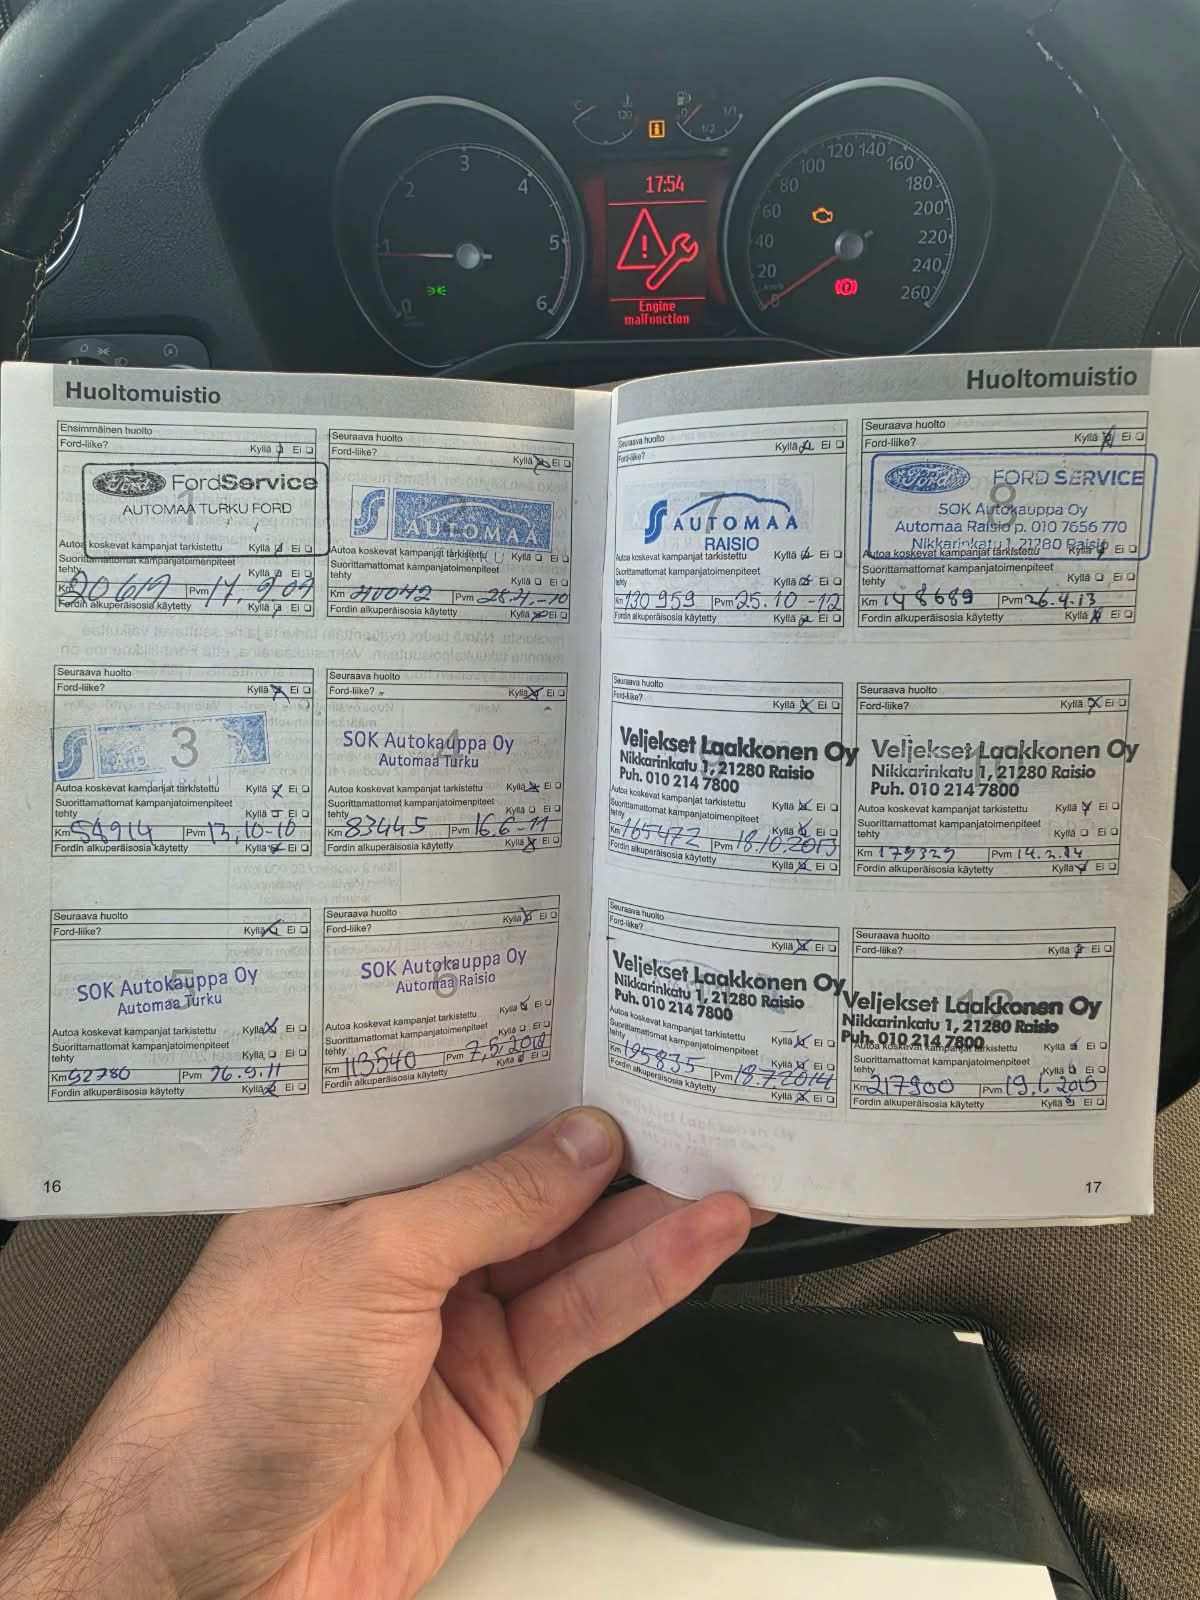 C
120
0
1/2
1/1
0
1
2
3
4
5
6
17:54
Engine
malfunction
0
20
40
60
80
100
120
140
160
180
200
220
240
260
km/h
Huoltomuistio
Ensimmäinen huolto
Ford-liike?
Kyllä Ei
1
Ford FordService
AUTOMAA TURKU FORD
Autoa koskevat kampanjat tarkistettu Kyllä Ei
Suorittamattomat kampanjatoimenpiteet
tehty Kyllä Ei
Km 20619 Pvm 9 09
Fordin alkuperäisosia käytetty Kyllä Ei
Seuraava huolto
Ford-liike?
Kyllä Ei
S AUTOMAA
Autoa koskevat kampanjat tarkistettu Kyllä Ei
Suorittamattomat kampanjatoimenpiteet
tehty Kyllä Ei
Km 40042 Pvm -10
Fordin alkuperäisosia käytetty Kyllä Ei
Seuraava huolto
Ford-liike? Kyllä Ei
3
TURKU
Autoa koskevat kampanjat tarkistettu Kyllä Ei
Suorittamattomat kampanjatoimenpiteet
tehty Kyllä Ei
Km 58914 Pvm 13.10-10
Fordin alkuperäisosia käytetty Kyllä Ei
Seuraava huolto
Ford-liike? Kyllä Ei
4
SOK Autokauppa Oy
Automaa Turku
Autoa koskevat kampanjat tarkistettu Kyllä Ei
Suorittamattomat kampanjatoimenpiteet
tehty Kyllä Ei
Km 83445 Pvm 16.6-11
Fordin alkuperäisosia käytetty Kyllä Ei
Seuraava huolto
Ford-liike? Kyllä Ei
5
SOK Autokauppa Oy
Automaa Turku
Autoa koskevat kampanjat tarkistettu Kyllä Ei
Suorittamattomat kampanjatoimenpiteet
tehty Kyllä Ei
Km 92780 Pvm 26.9.11
Fordin alkuperäisosia käytetty Kyllä Ei
Seuraava huolto
Ford-liike? Kyllä Ei
6
SOK Autokauppa Oy
Automaa Raisio
Autoa koskevat kampanjat tarkistettu Kyllä Ei
Suorittamattomat kampanjatoimenpiteet
tehty Kyllä Ei
Km 113540 Pvm 7.5.2012
Fordin alkuperäisosia käytetty Kyllä Ei
16
Huoltomuistio
Seuraava huolto
Ford-liike?
Kyllä Ei
7
S AUTOMAA
RAISIO
Autoa koskevat kampanjat tarkistettu Kyllä Ei
Suorittamattomat kampanjatoimenpiteet
tehty Kyllä Ei
Km 130959 Pvm 25.10-12
Fordin alkuperäisosia käytetty Kyllä Ei
Seuraava huolto
Ford-liike?
Kyllä Ei
8
Ford FORD SERVICE
SOK Autokauppa Oy
Automaa Raisio p. 010 7656 770
Nikkarinkatu 1, 21280 Raisio
Autoa koskevat kampanjat tarkistettu Kyllä Ei
Suorittamattomat kampanjatoimenpiteet
tehty Kyllä Ei
Km 148689 Pvm 26.4.13
Fordin alkuperäisosia käytetty Kyllä Ei
Seuraava huolto
Ford-liike? Kyllä Ei
Veljekset Laakkonen Oy
Nikkarinkatu 1, 21280 Raisio
Puh. 010 214 7800
Autoa koskevat kampanjat tarkistettu Kyllä Ei
Suorittamattomat kampanjatoimenpiteet
tehty Kyllä Ei
Km 165472 Pvm 18.10.2013
Fordin alkuperäisosia käytetty Kyllä Ei
Seuraava huolto
Ford-liike? Kyllä Ei
Veljekset Laakkonen Oy
Nikkarinkatu 1, 21280 Raisio
Puh. 010 214 7800
Autoa koskevat kampanjat tarkistettu Kyllä Ei
Suorittamattomat kampanjatoimenpiteet
tehty Kyllä Ei
Km 179329 Pvm 14.2.14
Fordin alkuperäisosia käytetty Kyllä Ei
Seuraava huolto
Ford-liike? Kyllä Ei
Veljekset Laakkonen Oy
Nikkarinkatu 1, 21280 Raisio
Puh. 010 214 7800
Autoa koskevat kampanjat tarkistettu Kyllä Ei
Suorittamattomat kampanjatoimenpiteet
tehty Kyllä Ei
Km 195835 Pvm 18.7.2014
Fordin alkuperäisosia käytetty Kyllä Ei
Seuraava huolto
Ford-liike? Kyllä Ei
12
Veljekset Laakkonen Oy
Nikkarinkatu 1, 21280 Raisio
Puh. 010 214 7800
Autoa koskevat kampanjat tarkistettu Kyllä Ei
Suorittamattomat kampanjatoimenpiteet
tehty Kyllä Ei
Km 217900 Pvm 19.1.2015
Fordin alkuperäisosia käytetty Kyllä Ei
17